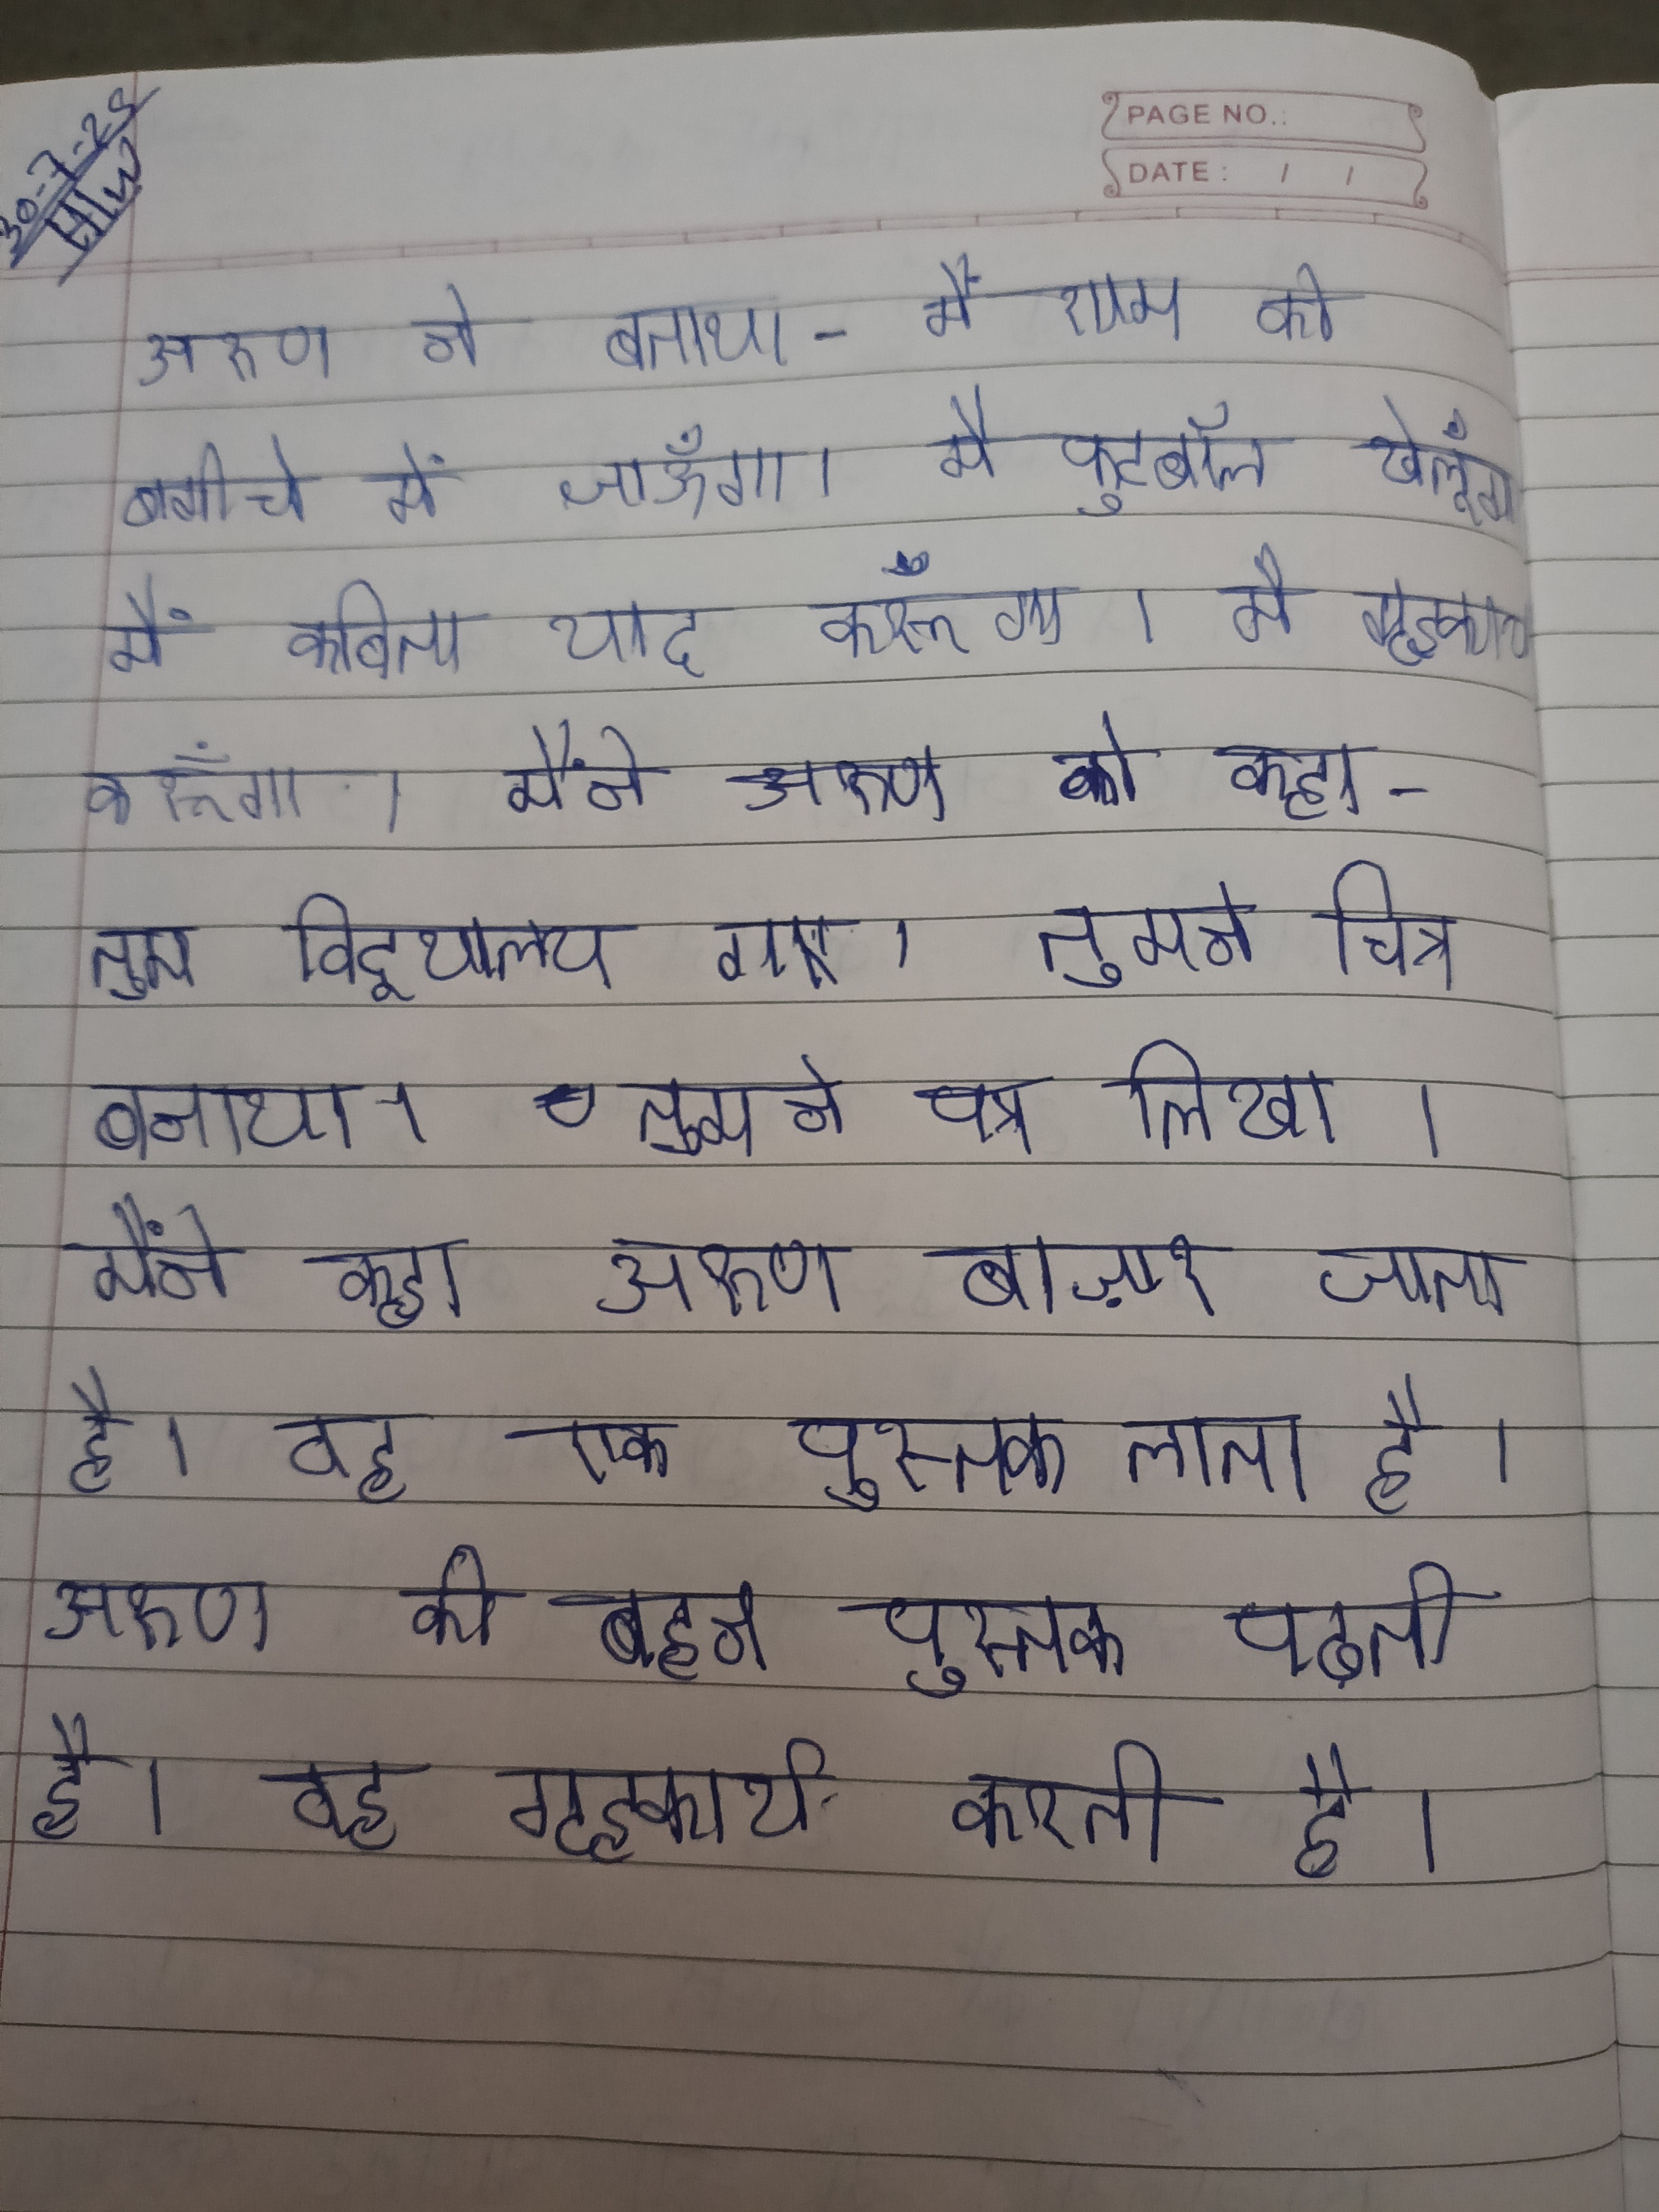 30-7-25
H/W
PAGE NO.:
DATE: / /
अरुण ने बताया- मैं शाम को
बगीचे में जाऊँगा। मै फुटबॉल खेलूँगा
मैं कविता याद करूँगा। मै गृहकार्य
करूँगा। मैंने अरुण को कहा-
तुम विद्यालय गए। तुमने चित्र
बनाया। तुमने पत्र लिखा।
मैंने कहा अरुण बाज़ार जाता
है। वह एक पुस्तक लाता है।
अरुण की बहन पुस्तक पढ़ती
है। वह गृहकार्य करती है।